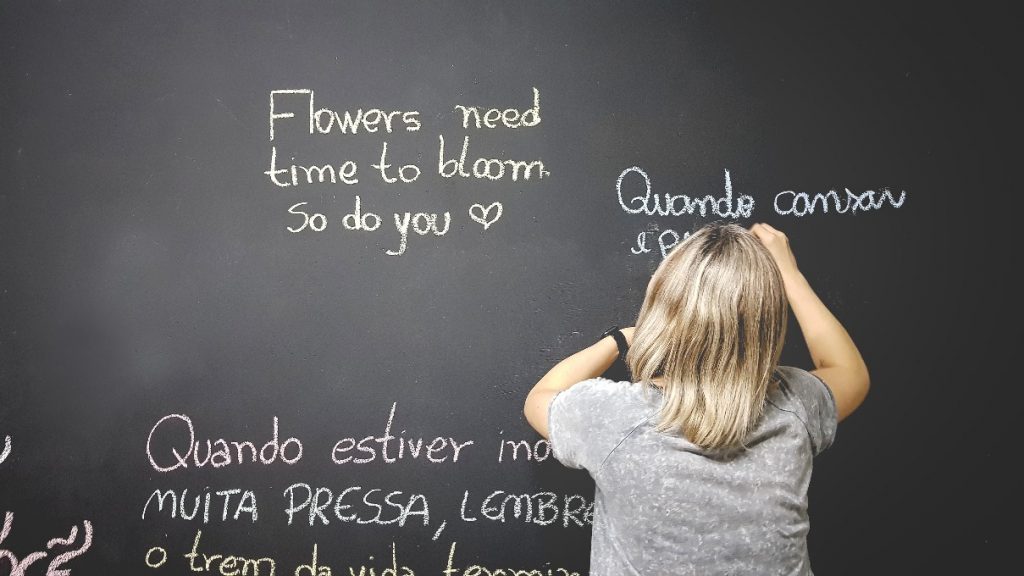 Flowers need
time to bloom.
So do you
Quando cansar
Quando estiver
MUITA PRESSA, LEMBRE
o trem da vida